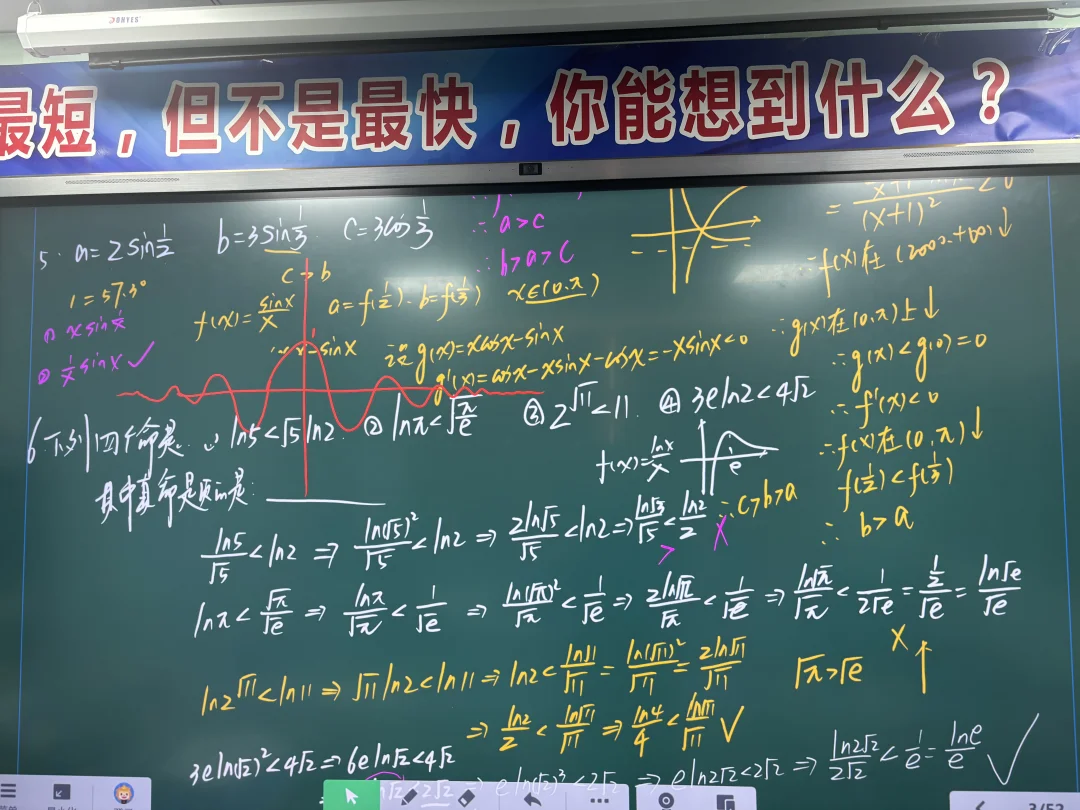 DONYES
最短，但不是最快，你能想到什么？
5. a=2sin½ b=3sin⅓ c=3cos⅓
∴a>c
∴b>a>c
c>b
1=57.3°
① xsin
② 1/x sinx ✓
f(x)=sinx/x a=f(½). b=f(⅓) x∈(0.π)
g(x)=xcosx-sinx
g'(x)=cosx-xsinx-cosx=-xsinx<0
(x+1)²
∴f(x)在(2002.+∞)↓
∴g(x)在(0.π)上↓
∴g(x)<g(0)=0
∴f'(x)<0
∴f(x)在(0.π)↓
f(½)<f(⅓)
∴b>a
6.下列四个命题. ln5<√5ln2. ② lnπ<√(π/e) ③ 2^√11<11. ④ 3eln2<4√2
其中真命题的是:
f(x)=lnx/x e
∴c>b>a
ln5/√5<ln2 ⇒ ln(√5)²/√5<ln2 ⇒ 2ln√5/√5<ln2 ⇒ ln√5/√5<ln2/2 > ×
lnπ<√π/√e ⇒ lnπ/√π<1/√e ⇒ ln(√π)²/√π<1/√e ⇒ 2ln√π/√π<1/√e ⇒ ln√π/√π<1/2√e=½/√e=ln√e/√e
√π>√e × ↑
ln2^√11<ln11 ⇒ √11ln2<ln11 ⇒ ln2<ln11/√11=ln(√11)²/√11=2ln√11/√11
⇒ ln2/2<ln√11/√11 ⇒ ln4/4<ln√11/√11 ✓
3eln(√2)²<4√2 ⇒ 6eln√2<4√2
⇒ eln(√2)³<2√2 ⇒ eln2√2<2√2 ⇒ ln2√2/2√2<1/e=lne/e ✓
3/52